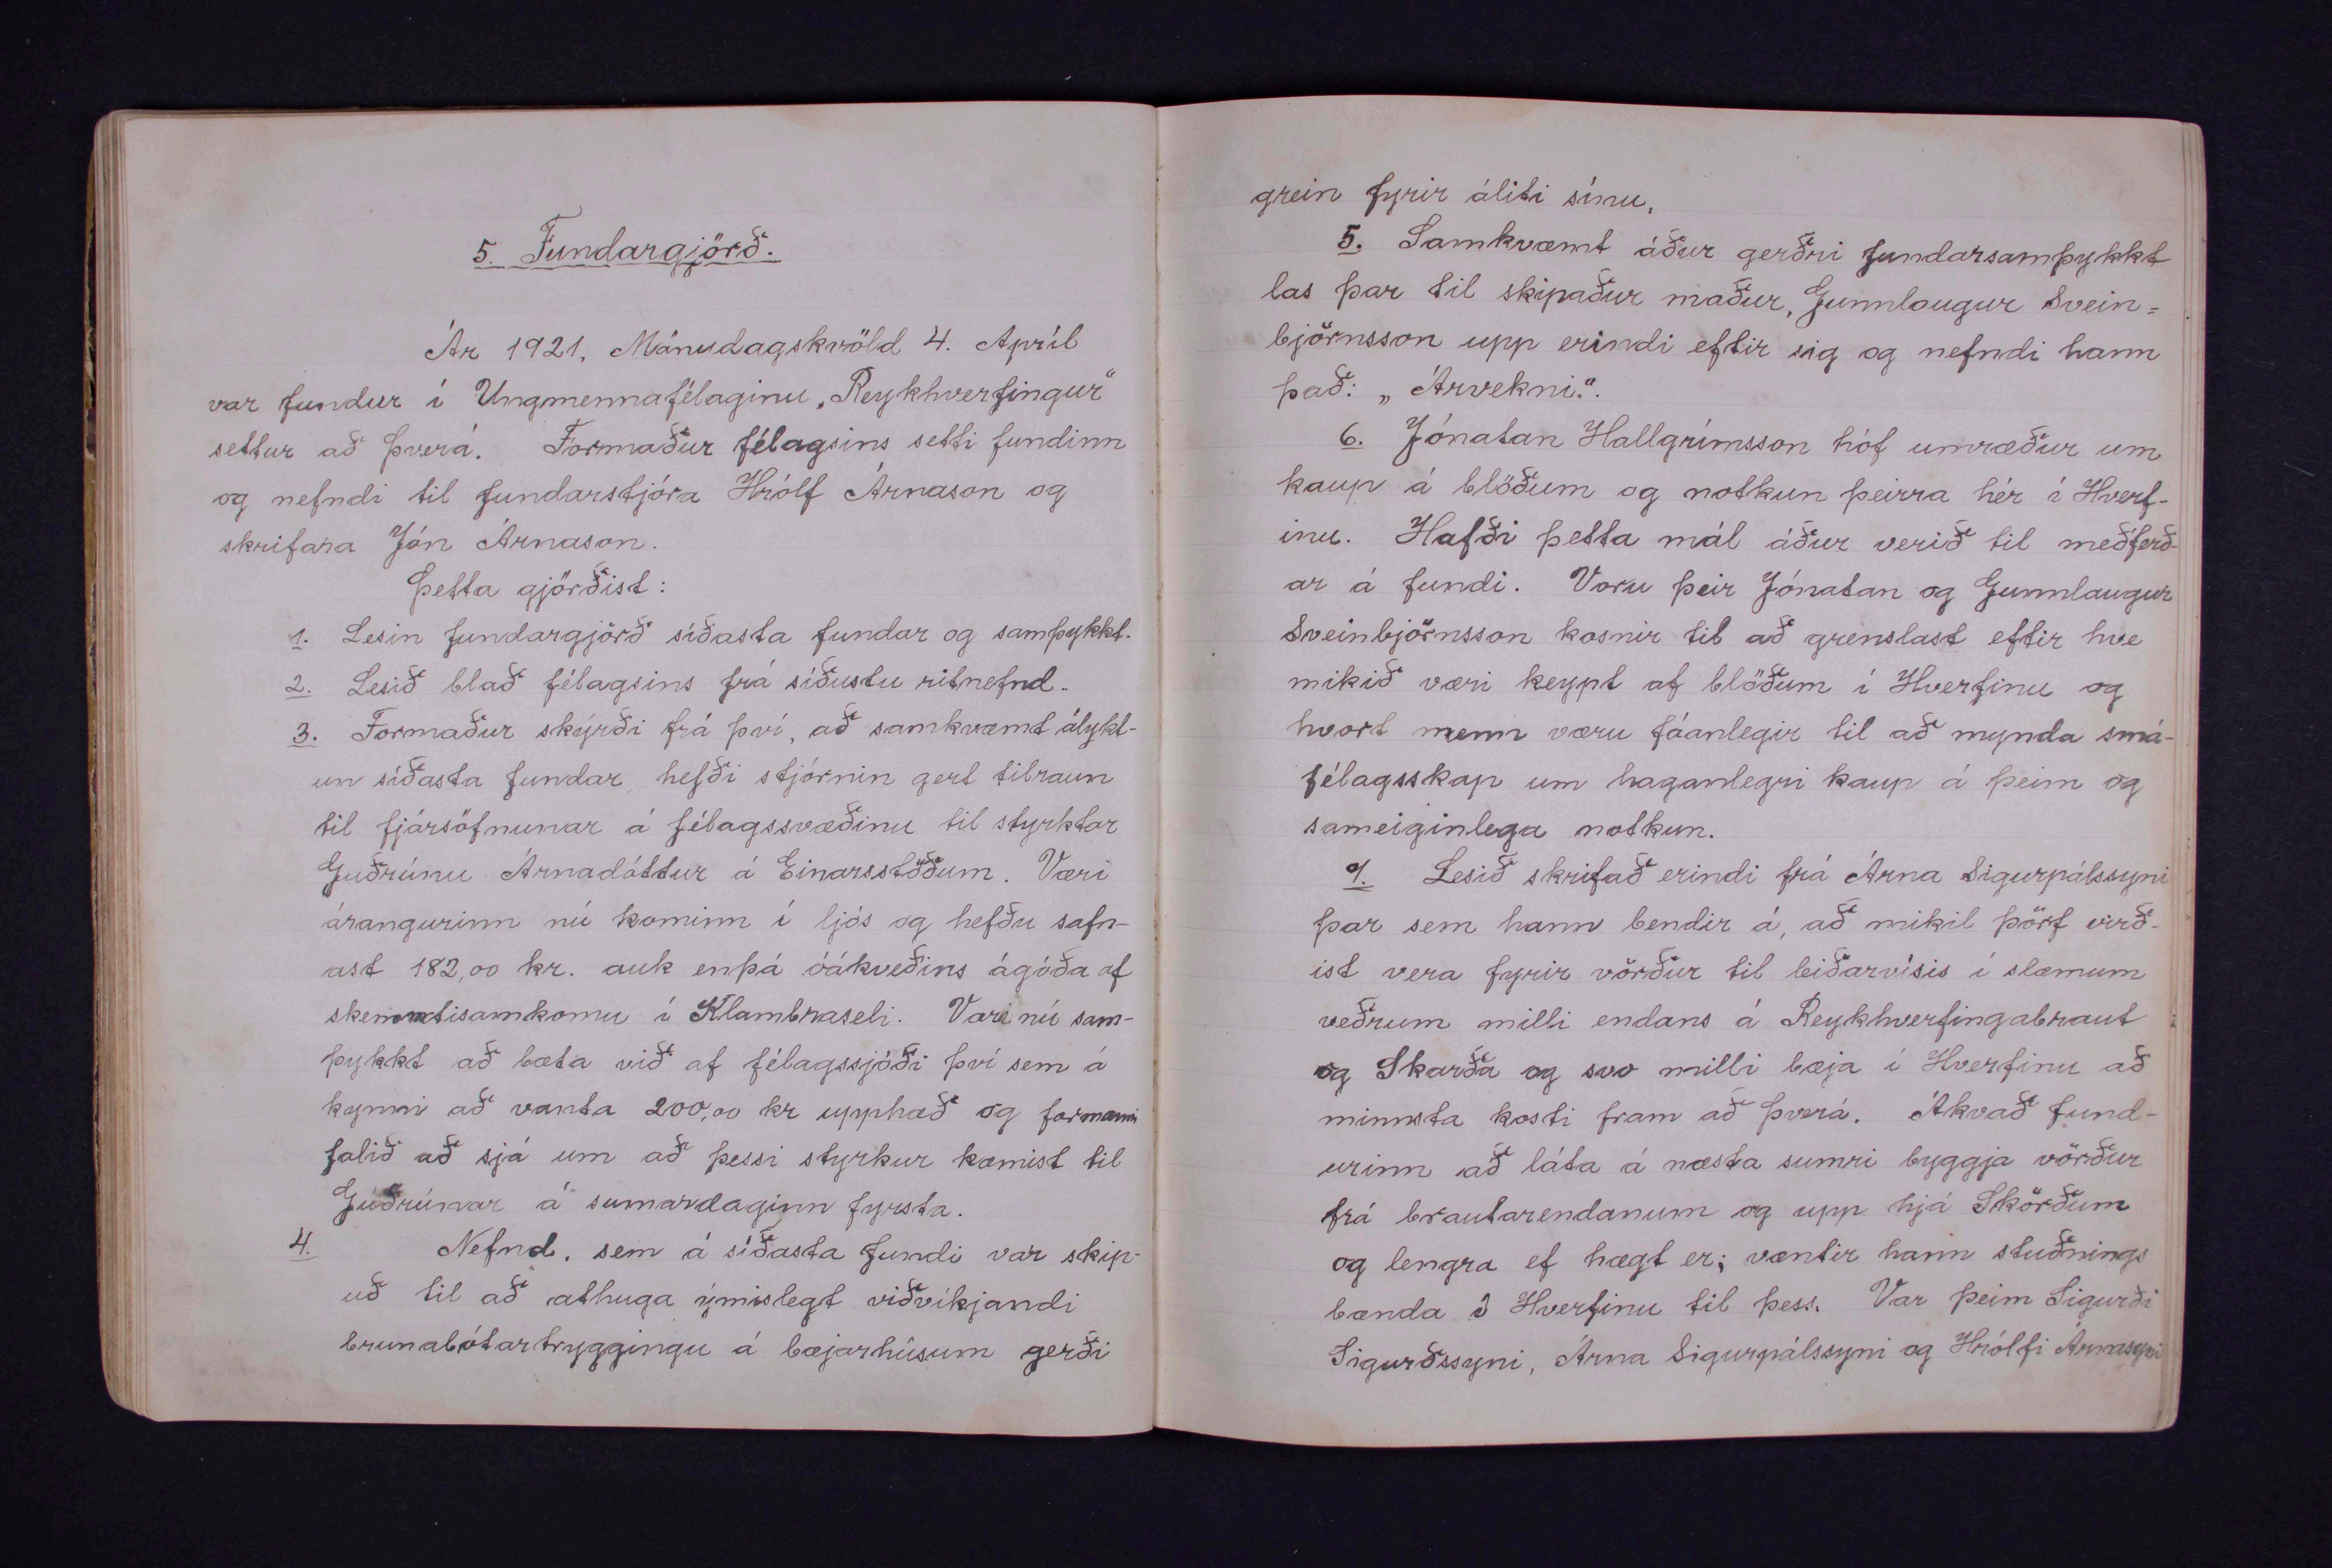 5. Fundargjörð.
Ár 1921, Mánudagskvöld 4. Apríl
var fundur í Ungmennafélaginu „Reykhverfingur“
settur að Þverá. Formaður félagsins setti fundinn
og nefndi til fundarstjóra Hrólf Árnason og
skrifara Jón Árnason.
Þetta gjörðist:
1. Lesin fundargjörð síðasta fundar og samþykkt.
2. Lesið blað félagsins frá síðustu ritnefnd.
3. Formaður skýrði frá því, að samkvæmt álykt-
un síðasta fundar, hefði stjórnin gert tilraun
til fjársöfnunar á félagssvæðinu til styrktar
Guðrúnu Árnadóttur á Einarsstöðum. Væri
árangurinn nú kominn í ljós og hefðu safn-
ast 182,00 kr. auk enþá óákveðins ágóða af
skemmtisamkomu í Klambraseli. Væri nú sam-
þykkt að bæta við af félagssjóði því sem á
kynni að vanta 200,00 kr upphæð og formanni
falið að sjá um að þessi styrkur kæmist til
Guðrúnar á sumardaginn fyrsta.
4. Nefnd, sem á síðasta fundi var skip-
uð til að athuga ýmislegt viðvíkjandi
brunabótartryggingu á bæjarhúsum gerði
grein fyrir áliti sínu.
5. Samkvæmt áður gerðri fundarsamþykkt
las þar til skipaður maður, Gunnlaugur Svein=
björnsson upp erindi eftir sig og nefndi hann
það: „Árvekni“.
6. Jónatan Hallgrímsson hóf umræður um
kaup á blöðum og notkun þeirra hér í Hverf-
inu. Hafði þetta mál áður verið til meðferð-
ar á fundi. Voru þeir Jónatan og Gunnlaugur
Sveinbjörnsson kosnir til að grenslast eftir hve
mikið væri keypt af blöðum í Hverfinu og
hvort menn væru fáanlegir til að mynda smá-
félagsskap um haganlegri kaup á þeim og
sameiginlega notkun.
7. Lesið skrifað erindi frá Árna Sigurpálssyni
þar sem hann bendir á, að mikil þörf virð-
ist vera fyrir vörður til leiðarvísis í slæmum
veðrum milli endans á Reykhverfingabraut
og Skarða og svo milli bæja í Hverfinu að
minnsta kosti fram að Þverá. Ákvað fund-
urinn að láta á næsta sumri byggja vörður
frá brautarendanum og upp hjá Skörðum
og lengra ef hægt er; væntir hann stuðnings
bænda í Hverfinu til þess. Var þeim Sigurði
Sigurðssyni, Árna Sigurpálssyni og Hrólfi Árnasyni